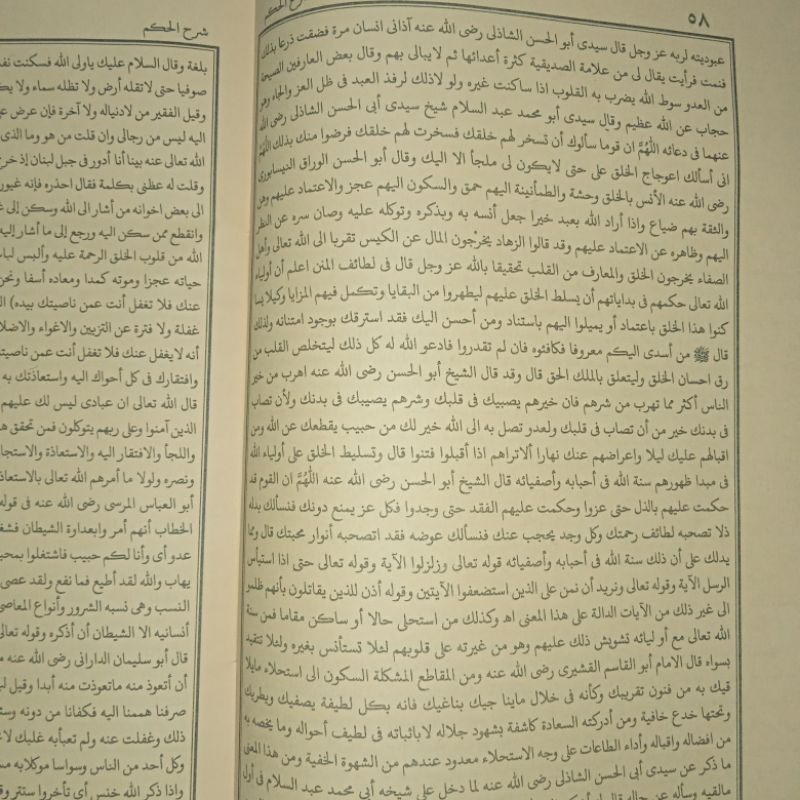 ٥٨
عبوديته لربه عز وجل قال سيدى أبو الحسن الشاذلى رضى الله عنه آذانى انسان مرة فضقت ذرعا بذلك
فنمت فرأيت يقال لى من علامة الصديقية كثرة أعدائها ثم لا يبالى بهم وقال بعض العارفين الصيحة
من العدو سوط الله يضرب به القلوب اذا ساكنت غيره ولو لا ذلك لرفد العبد فى ظل العز والجاه وهو
حجاب عن الله عظيم وقال سيدى أبو محمد عبد السلام شيخ سيدى أبى الحسن الشاذلى رضى الله
عنهما فى دعائه اللهم ان قوما سألوك أن تسخر لهم خلقك فسخرت لهم خلقك فرضوا منك بذلك اللهم
انى أسألك اعوجاج الخلق على حتى لا يكون لى ملجأ الا اليك وقال أبو الحسن الوراق النيسابورى
رضى الله عنه الأنس بالخلق وحشة والطمأنينة اليهم حمق والسكون اليهم عجز والاعتماد عليهم وهن
والثقة بهم ضياع واذا أراد الله بعبد خيرا جعل أنسه به وبذكره وتوكله عليه وصان سره عن النظر
اليهم وظاهره عن الاعتماد عليهم وقد قالوا الزهاد يخرجون المال عن الكيس تقربا الى الله تعالى وأهل
الصفاء يخرجون الخلق والمعارف من القلب تحقيقا بالله عز وجل قال فى لطائف المنن اعلم أن أولياء
الله تعالى حكمهم فى بداياتهم أن يسلط الخلق عليهم ليطهروا من البقايا وتكمل فيهم المزايا وكيلا يسا
كنوا هذا الخلق باعتماد أو يميلوا اليهم باستناد ومن أحسن اليك فقد استرقك بوجود امتنانه ولذلك
قال ﷺ من أسدى اليكم معروفا فكافئوه فان لم تقدروا فادعو الله له كل ذلك ليتخلص القلب من
رق احسان الخلق وليتعلق بالملك الحق قال وقد قال الشيخ أبو الحسن رضى الله عنه اهرب من خير
الناس أكثر مما تهرب من شرهم فان خيرهم يصيبك فى قلبك وشرهم يصيبك فى بدنك ولأن تصاب
فى بدنك خير من أن تصاب فى قلبك ولعدو تصل به الى الله خير لك من حبيب يقطعك عن الله ومن
اقبالهم عليك ليلا واعراضهم عنك نهارا ألا تراهم اذا أقبلوا فتنوا قال وتسليط الخلق على أولياء الله
فى مبدا ظهورهم سنة الله فى أحبابه وأصفيائه قال الشيخ أبو الحسن رضى الله عنه اللهم ان القوم قد
حكمت عليهم بالذل حتى عزوا وحكمت عليهم الفقد حتى وجدوا فكل عز يمنع دونك فنسألك بدله
ذلا تصحبه لطائف رحمتك وكل وجد يحجب عنك فنسألك عوضه فقد اتصحبه أنوار محبتك قال ومما
يدلك على أن ذلك سنة الله فى أحبابه وأصفيائه قوله تعالى وزلزلوا الآية وقوله تعالى حتى اذا استيأس
الرسل الآية وقوله تعالى ونريد أن نمن على الذين استضعفوا الآيتين وقوله أذن للذين يقاتلون بأنهم ظلموا
الى غير ذلك من الآيات الدالة على هذا المعنى اه وكذلك من استحلى حالا أو ساكن مقاما فمن سنة
الله تعالى مع أوليائه تشويش ذلك عليهم وهو من غيرته على قلوبهم لئلا تستأنس بغيره ولئلا تتقيد
بسواه قال الامام أبو القاسم القشيرى رضى الله عنه ومن المقاطع المشكلة السكون الى استحلاء مايلا
قيك به من فنون تقريبك وكأنه فى خلال ما يناجيك يناغيك فانه بكل لطيفة يصفيك ويطريك
وتحتها خدع خافية ومن أدركته السعادة كاشفة بشهود جلاله لا باثباته فى لطيف أحواله وما يخصه به
من افضاله واقباله وأداء الطاعات على وجه الاستحلاء معدود عندهم من الشهوة الخفية ومن هذا المعنى
ما ذكر عن سيدى أبى الحسن الشاذلى رضى الله عنه لما دخل على شيخه أبى محمد عبد السلام فى أول
شرح الحكم
بلغة وقال السلام عليك ياولى الله فسكنت
صوفيا حتى لا تقله أرض ولا تظله سماء ولا
وقيل الفقير من لا دنيا له ولا آخرة فإن عرض
اليه ليس من رجالى وان قلت من هو وما الذى
الله تعالى عنه بينا أنا أدور فى جبل لبنان إذ خرج
وقلت له عظنى بكلمة فقال احذره فإنه غيور
الى بعض اخوانه من أشار الى الله وسكن إلى
وانقطع ممن سكن اليه ورجع إلى ما أشار إليه
الله من قلوب الخلق الرحمة عليه وألبس
حياته عجزا وموته كمدا ومعاده أسفا ونحن
عنك فلا تغفل أنت عمن ناصيتك بيده)
غفلة ولا فترة عن التزيين والاغواء والاضلال
أنه لا يغفل عنك فلا تغفل أنت عمن ناصيتك
وافتقارك فى كل أحوالك اليه واستعاذتك به
قال الله تعالى ان عبادى ليس لك عليهم
الذين آمنوا وعلى ربهم يتوكلون فمن تحقق
واللجأ والافتقار اليه والاستعاذة والاستجارة
ونصره ولولا ما أمرهم الله تعالى بالاستعاذة
أبو العباس المرسى رضى الله عنه فى قوله
الخطاب أنهم أمر وابعداوة الشيطان
عدو أى وأنا لكم حبيب فاشتغلوا
يهاب والله لقد أطيع فما نفع ولقد عصى
النسب وهى نسبه الشرور وأنواع المعاصى
أنسانيه الا الشيطان أن أذكره وقوله تعالى
قال أبو سليمان الدارانى رضى الله عنه
أن أتعوذ منه ماتعوذت منه أبدا وقيل
صرفنا هممنا اليه فكفانا من دونه
ذلك وغفلت عنه ولم تعبأبه غلبك
وكل أحد من الناس وسواسا موكلا به
واذا ذكر الله خنس أى تأخروا ستتر